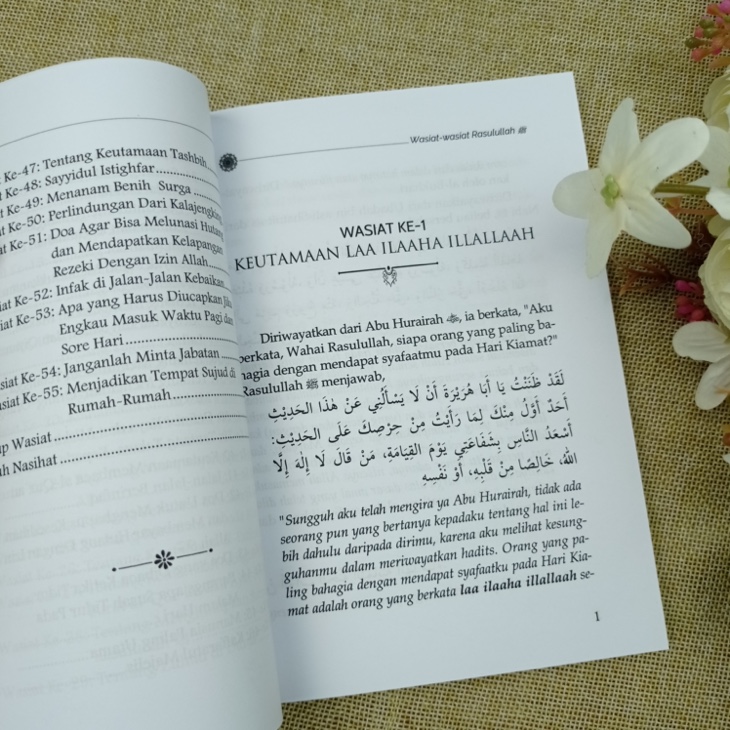 Ke-47: Tentang Keutamaan Tashbih
Ke-48: Sayyidul Istighfar
Ke-49: Menanam Benih Surga
Ke-50: Perlindungan Dari Kalajengking
Ke-51: Doa Agar Bisa Melunasi Hutang
dan Mendapatkan Kelapangan
Rezeki Dengan Izin Allah
Ke-52: Infak di Jalan-Jalan Kebaikan
Ke-53: Apa yang Harus Diucapkan Jika
Engkau Masuk Waktu Pagi dan
Sore Hari
Ke-54: Janganlah Minta Jabatan
Ke-55: Menjadikan Tempat Sujud di
Rumah-Rumah
Wasiat
Nasihat
Wasiat-wasiat Rasulullah ﷺ
WASIAT KE-1
KEUTAMAAN LAA ILAAHA ILLALLAAH
Diriwayatkan dari Abu Hurairah, ia berkata, "Aku
berkata, Wahai Rasulullah, siapa orang yang paling ba-
hagia dengan mendapat syafaatmu pada Hari Kiamat?"
Rasulullah ﷺ menjawab,
لَقَدْ ظَنَنْتُ يَا أَبَا هُرَيْرَةَ أَنْ لَا يَسْأَلُنِي عَنْ هٰذَا الحَدِيْثِ
أَحَدٌ أَوَّلُ مِنْكَ لِمَا رَأَيْتُ مِنْ حِرْصِكَ عَلَى الحَدِيْثِ:
أَسْعَدُ النَّاسِ بِشَفَاعَتِي يَوْمَ القِيَامَةِ، مَنْ قَالَ لَا إِلٰهَ إِلَّا
اللهُ، خَالِصًا مِنْ قَلْبِهِ، أَوْ نَفْسِهِ
"Sungguh aku telah mengira ya Abu Hurairah, tidak ada
seorang pun yang bertanya kepadaku tentang hal ini le-
bih dahulu daripada dirimu, karena aku melihat kesung-
guhanmu dalam meriwayatkan hadits. Orang yang pa-
ling bahagia dengan mendapat syafaatku pada Hari Kia-
mat adalah orang yang berkata laa ilaaha illallaah se-
1